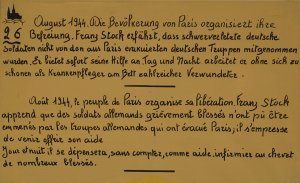 26
August 1944. Die Bevölkerung von Paris organisiert ihre
Befreiung. Franz Stock erfährt, dass schwerverletzte deutsche
Soldaten nicht von den aus Paris evakuierten deutschen Truppen mitgenommen
wurden. Er bietet sofort seine Hilfe an Tag und Nacht arbeitet er ohne sich zu
schonen als Krankenpfleger am Bett zahlreicher Verwundeter.
Août 1944, le peuple de Paris organise sa libération. Franz Stock
apprend que des soldats allemands grièvement blessés n'ont pû être
emmenés par les troupes allemandes qui ont évacué Paris; il s'empresse
de venir offrir son aide
Jour et nuit il se dépensera, sans compter, comme aide-infirmier au chevet
de nombreux blessés.